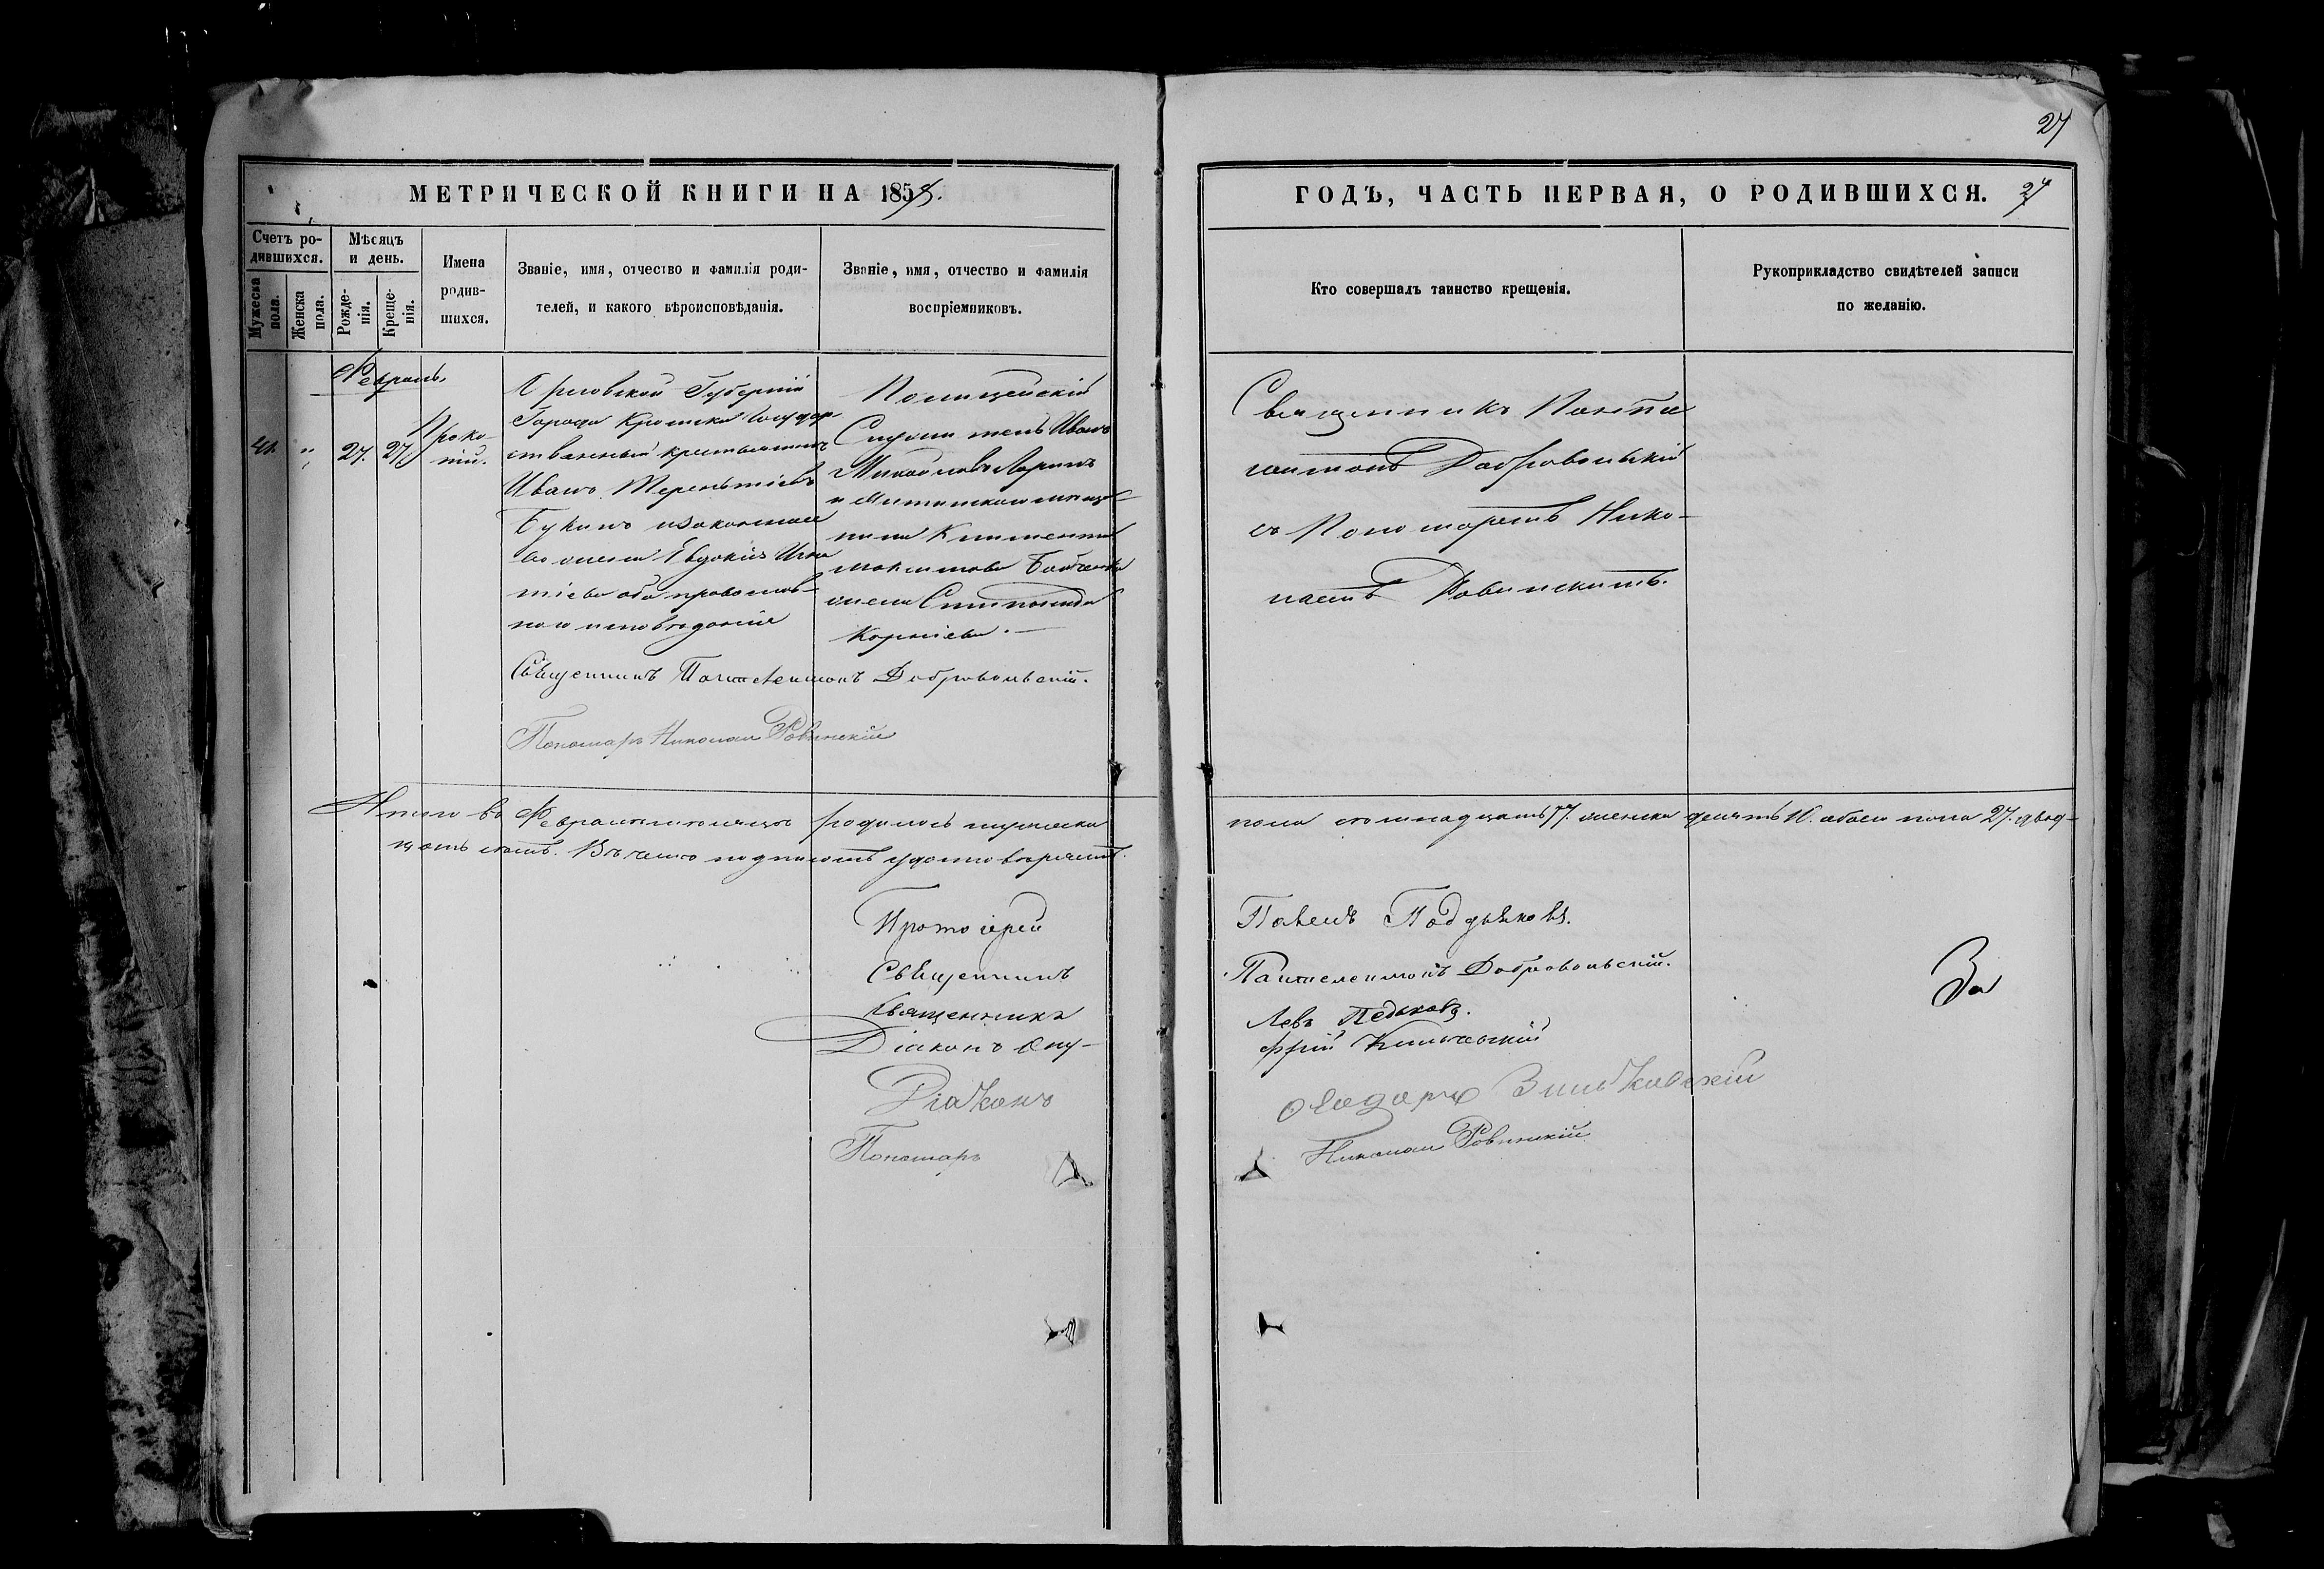 27
МЕТРИЧЕСКОЙ КНИГИ НА 1858.
ГОДЪ, ЧАСТЬ ПЕРВАЯ, О РОДИВШИХСЯ.
27
Счетъ ро-
дившихся.
Мужеска
пола.
Женска
пола.
Мѣсяцъ
и день.
Рожде-
нія.
Креще-
нія.
Имена
родив-
шихся.
Званіе, имя, отчество и фамилія роди-
телей, и какого вѣроисповѣданія.
Званіе, имя, отчество и фамилія
воспріемниковъ.
Кто совершалъ таинство крещенія.
Рукоприкладство свидѣтелей записи
по желанію.
Февраль
41.
"
27.
27
Проко-
пій.
Орловской Губерніи
Города Кромска Государ-
ственный крестьянинъ
Иванъ Терентіевъ
Букинъ и законная
его жена Евдокія Игна
тіева оба православ-
наго исповѣданія
Полицейскій
Служитель Иванъ
Михайловъ Ларинъ
и
Климента
Максимова
жена Спиридона
Корнieва.
Священникъ Панте
леимонъ Добровольскій
съ Пономаремъ Нико-
лаемъ Ровинскимъ.
Священникъ Пантелеимонъ Добровольскій.
Пономарь Николай Ровинскій
Итого въ Февралѣ мѣсяцѣ родилось мужеска
пола семнадцать 17. женска десять 10. обоего пола 27. двад-
цать семь. Въ чемъ подписомъ удостовѣряемъ.
Протоіерей
Павелъ Поддьяковъ.
Священникъ
Пантелеимонъ Добровольскій.
Священникъ
Левъ
Діаконъ Ону-
фрій
Діаконъ
Пономарь
Николай Ровинскій
За